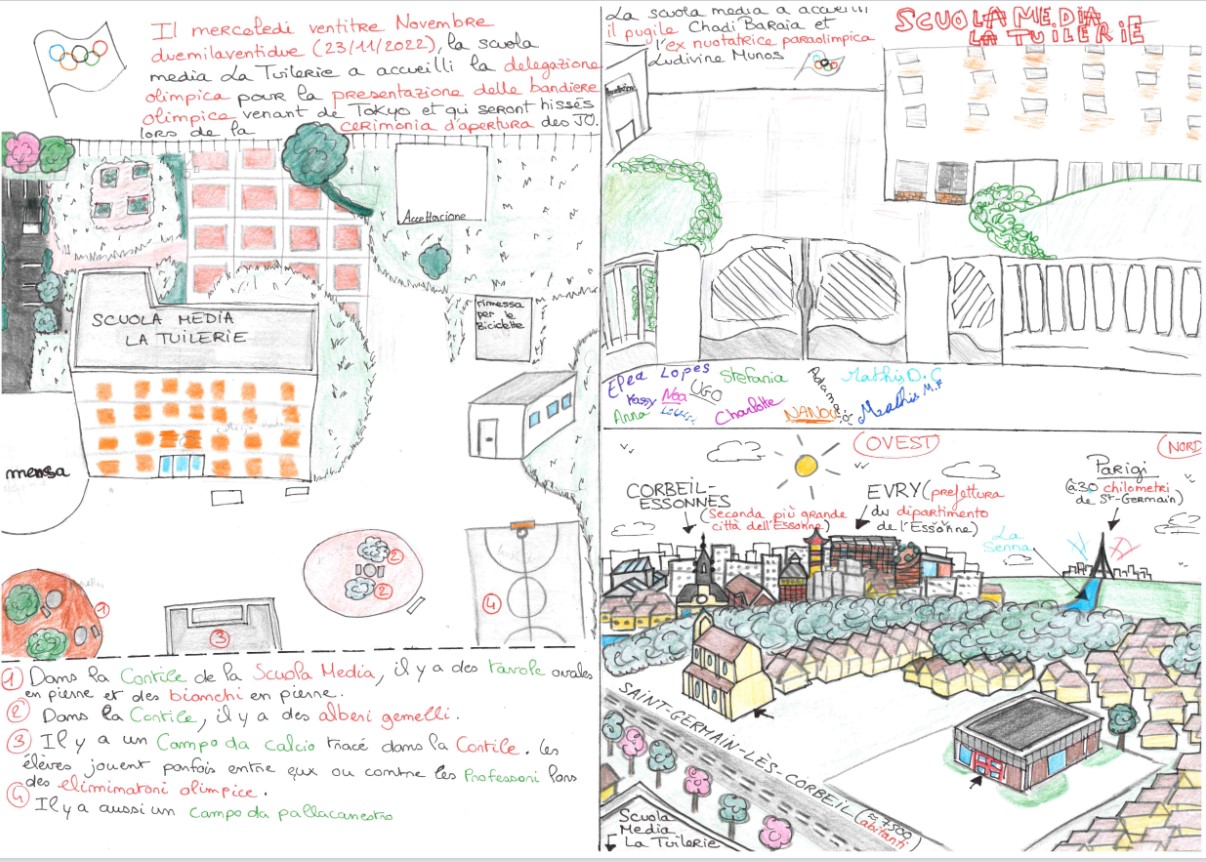 Il mercoledi ventitre Novembre
duemilaventidue (23/11/2022), la scuola
media La Tuilerie a accueilli la delegazione
olimpica pour la presentazione delle bandiere
olimpica venant de Tokyo et qui seront hissés
lors de la cerimonia d'apertura des JO.
Accettazione
rimessa
per le
Biciclette
SCUOLA MEDIA
LA TUILERIE
mensa
1
2
2
3
4
1 Dans la Cortile de la Scuola Media, il y a des tavole ovales
en pierre et des bianchi en pierre.
2 Dans la Cortile, il y a des alberi gemelli.
3 Il y a un Campo da calcio tracé dans la Cortile. Les
élèves jouent parfois entre eux ou contre les Professori lors
des elimimatoni olimpice.
4 Il y a aussi un campo da pallacanestro
La scuola media a accueilli
il pugile Chadi Baraia et
l'ex nuotatrice paraolimpica
Ludivine Munos
SCUOLA MEDIA
LA TUILERIE
Elea Lopes Stefania Mathis D.C
Kassy Noa UGO
Anna Charlotte NANOU Mathis M.P
OVEST
NORD
CORBEIL-
ESSONNES
(Seconda più grande
città dell'Essonne)
EVRY (prefettura
du dipartimento
de l'Essonne)
Parigi
(à 30 chilometri
de St-Germain)
La
Senna
SAINT-GERMAIN-LÈS-CORBEIL (≈7500
abitanti)
Scuola
Media
La Tuilerie